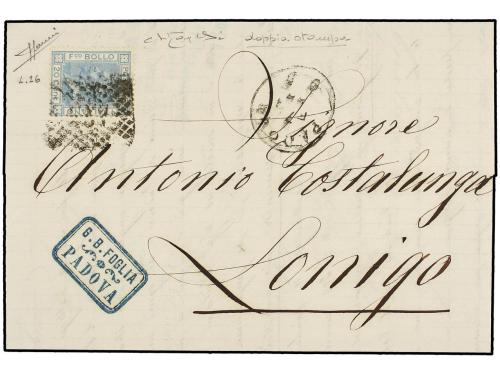 doppia stampa
L.26
F.co BOLLO
20
Signore
Antonio Costalunga
Lonigo
G. B. FOGLIA
PADOVA